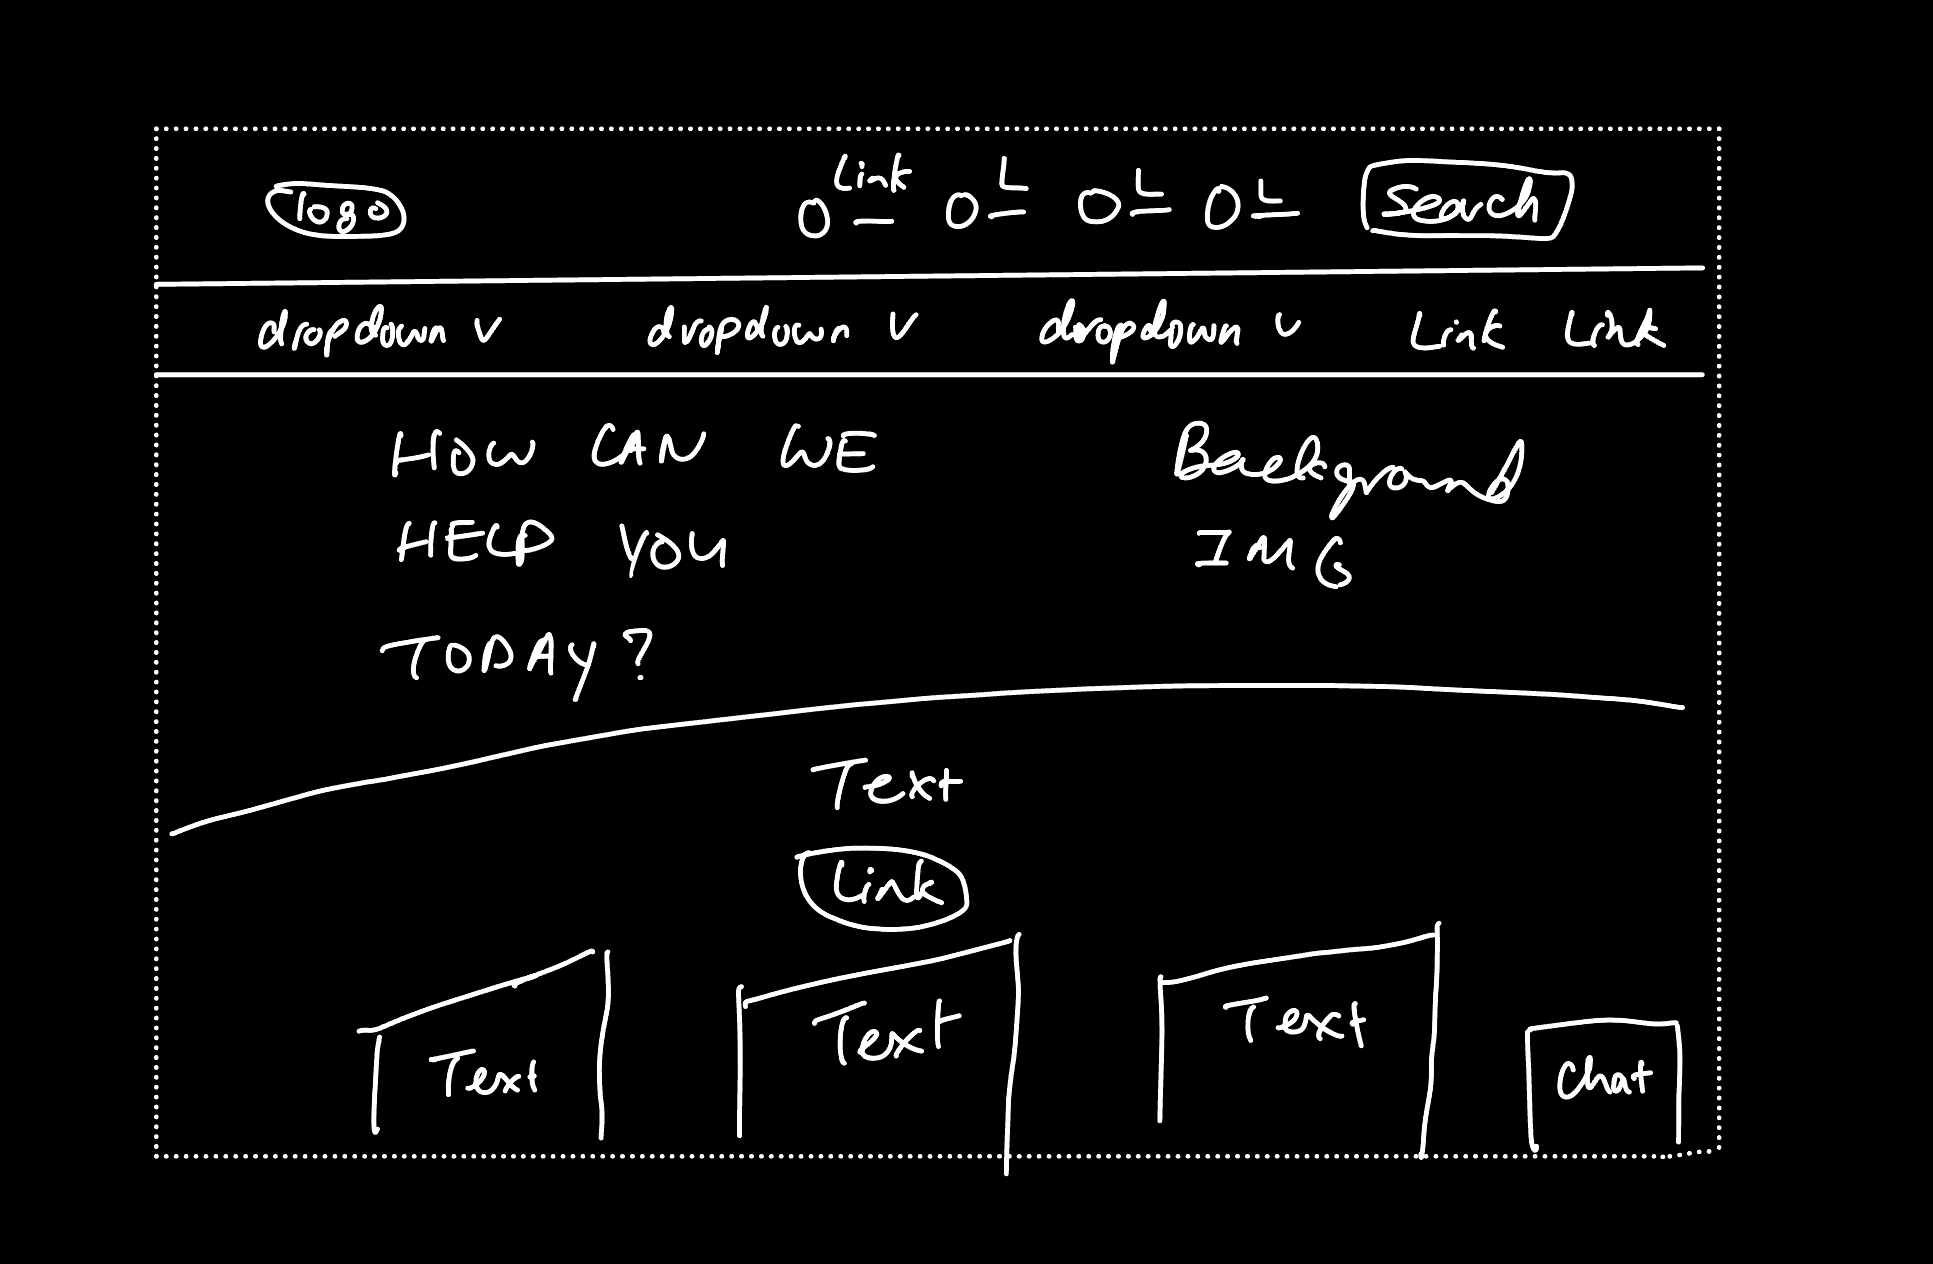 logo O Link O L O L O L Search
dropdown v dropdown v dropdown v Link Link
HOW CAN WE
HELP YOU
TODAY?
Background
IMG
Text
Link
Text Text Text Chat